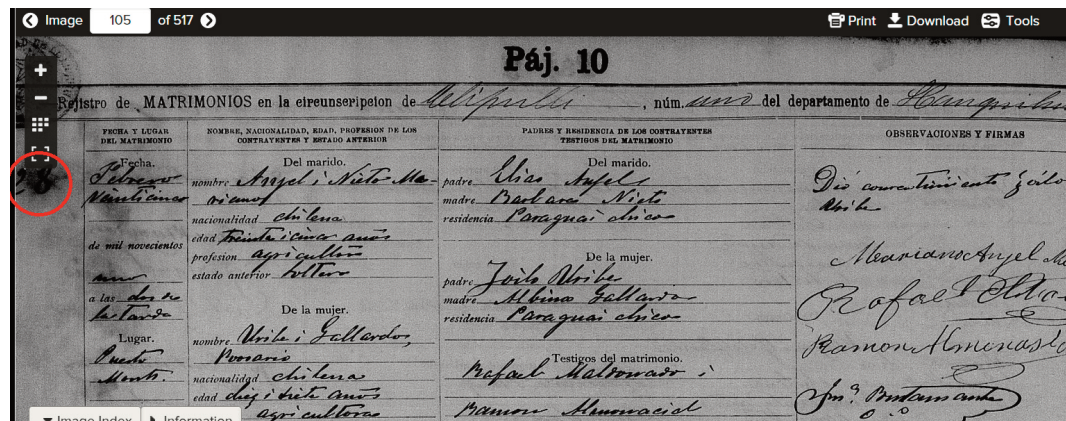 Image 105 of 517
Print Download Tools
Páj. 10
Rejistro de MATRIMONIOS en la circunscripcion de Melipulli, núm. uno del departamento de Llanquihue
FECHA Y LUGAR DEL MATRIMONIO
NOMBRE, NACIONALIDAD, EDAD, PROFESION DE LOS CONTRAYENTES Y ESTADO ANTERIOR
PADRES Y RESIDENCIA DE LOS CONTRAYENTES TESTIGOS DEL MATRIMONIO
OBSERVACIONES Y FIRMAS
Fecha.
Febrero
Veinticinco
de mil novecientos
uno
a las dos de
la tarde
Lugar.
Puerto
Montt.
Del marido.
nombre Anjel i Nieto Ma-
riano
nacionalidad chilena
edad treinta i cinco años
profesion agricultor
estado anterior soltero
De la mujer.
nombre Uribe i Gallardo,
Rosario
nacionalidad chilena
edad diez i siete años
agricultora
Del marido.
padre Elias Anjel
madre Barbara Nieto
residencia Paraguai chico
De la mujer.
padre Zoilo Uribe
madre Albina Gallardo
residencia Paraguai chico
Testigos del matrimonio.
Rafael Maldonado i
Ramon Almonacid
Dió consentimiento Zoilo
Uribe
Mariano Anjel
Rafael
Ramon Almonasid
Bustamante
Image Index Information